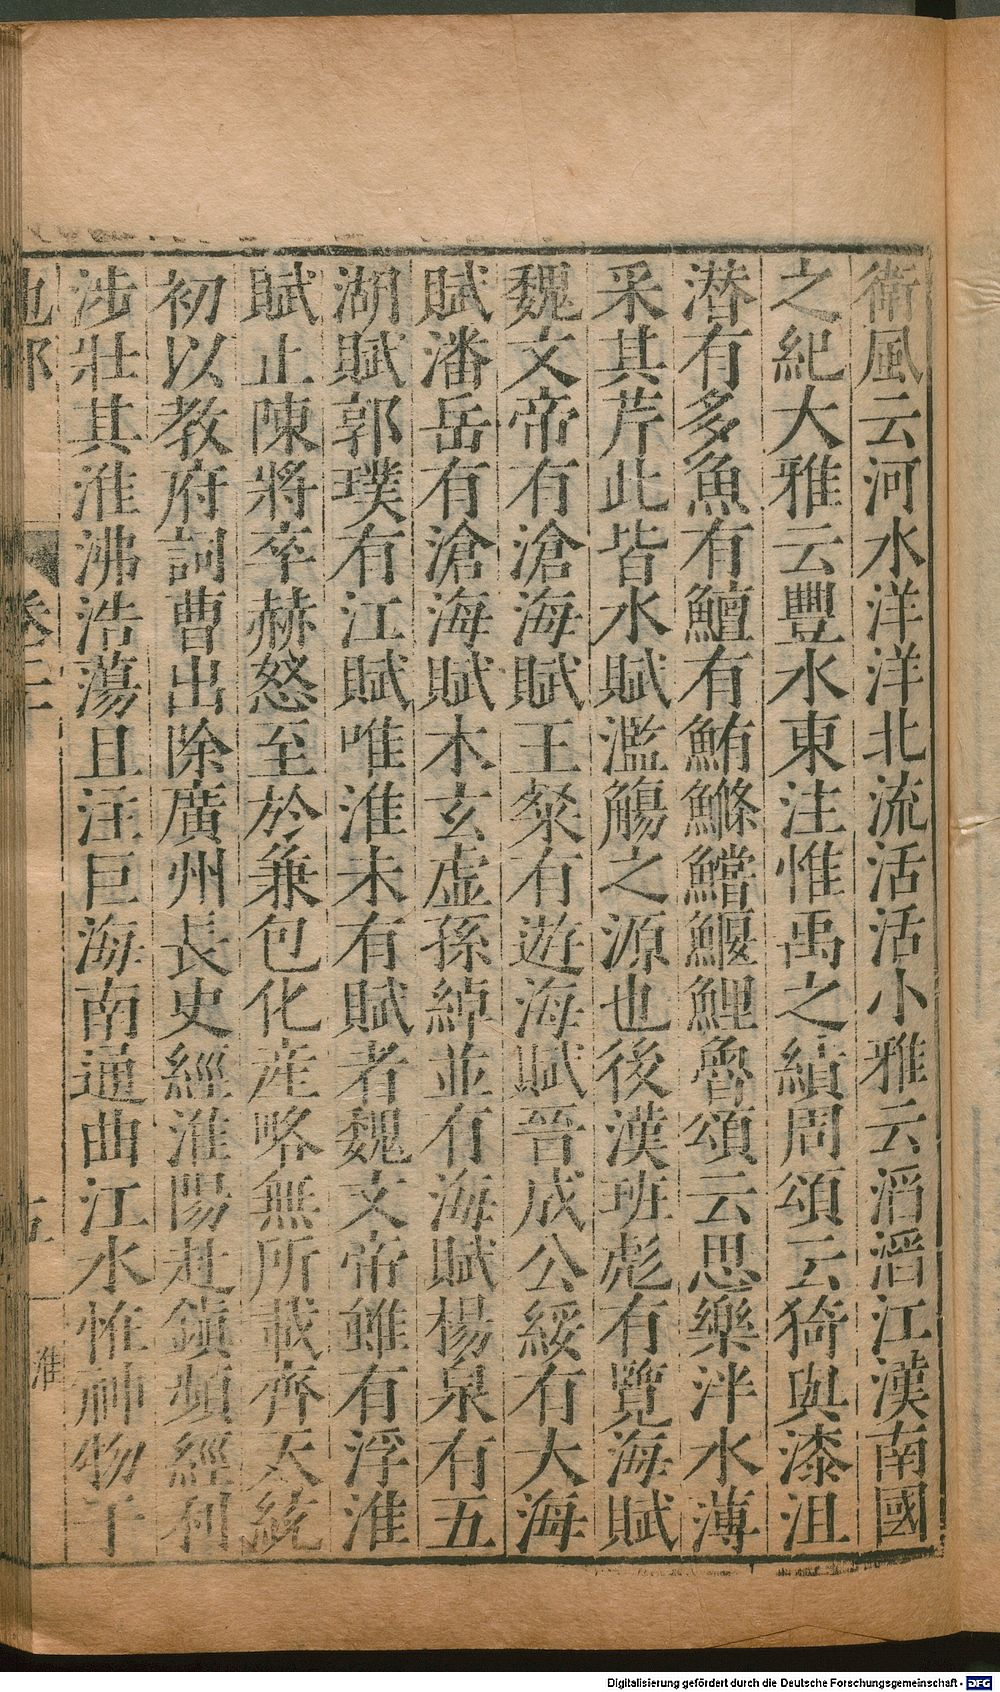 衛風云河水洋洋北流活活小雅云滔滔江漢南國
之紀大雅云豐水東注惟禹之績周頌云猗與漆沮
潜有多魚有鱣有鮪鰷鱨鰋鯉魯頌云思樂泮水薄
采其芹此皆水賦濫觴之源也後漢班彪有覽海賦
魏文帝有滄海賦王粲有遊海賦晉成公綏有大海
賦潘岳有滄海賦木玄虚孫綽並有海賦楊泉有五
湖賦郭璞有江賦唯淮未有賦者魏文帝雖有浮淮
賦止陳將卒赫怒至於兼包化産略無所載齊天統
初以教府詞曹出除廣州長史經淮陽赴鎮頻經利
涉壯其淮沸浩蕩且注巨海南通曲江水惟神物于
卷二
淮
Digitalisierung gefördert durch die Deutsche Forschungsgemeinschaft - DFG